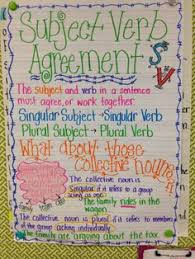 Subject Verb
Agreement
S
V
The subject and verb in a sentence
must agree, or work together.
Singular Subject → Singular Verb
Plural Subject → Plural Verb
What about those
collective nouns?
The collective noun is
singular if it refers to a
group acting as one.
The family rides in the
wagon.
The collective noun is plural if it refers to members
of the group acting individually.
The family are arguing about the tax.